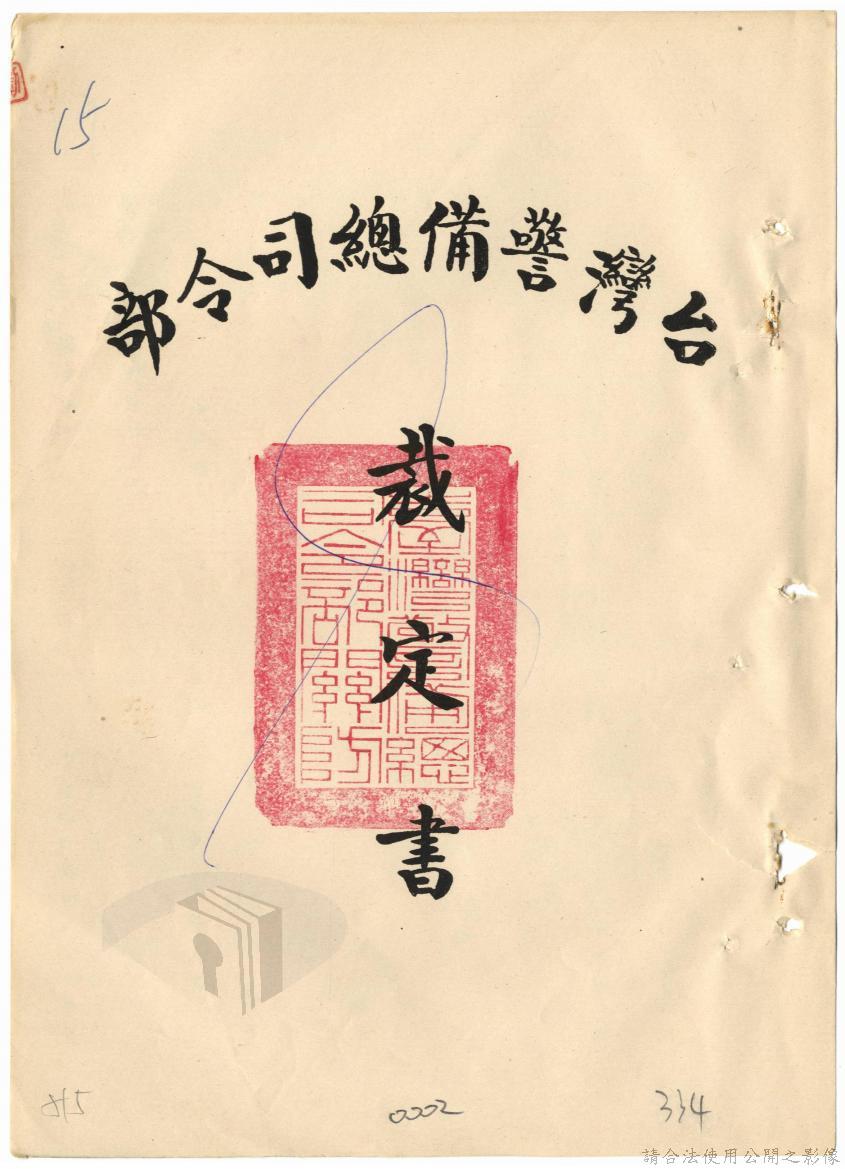 15
台灣警備總司令部
裁定書
臺灣警備總
司令部關防
0002
334
請合法使用公開之影像